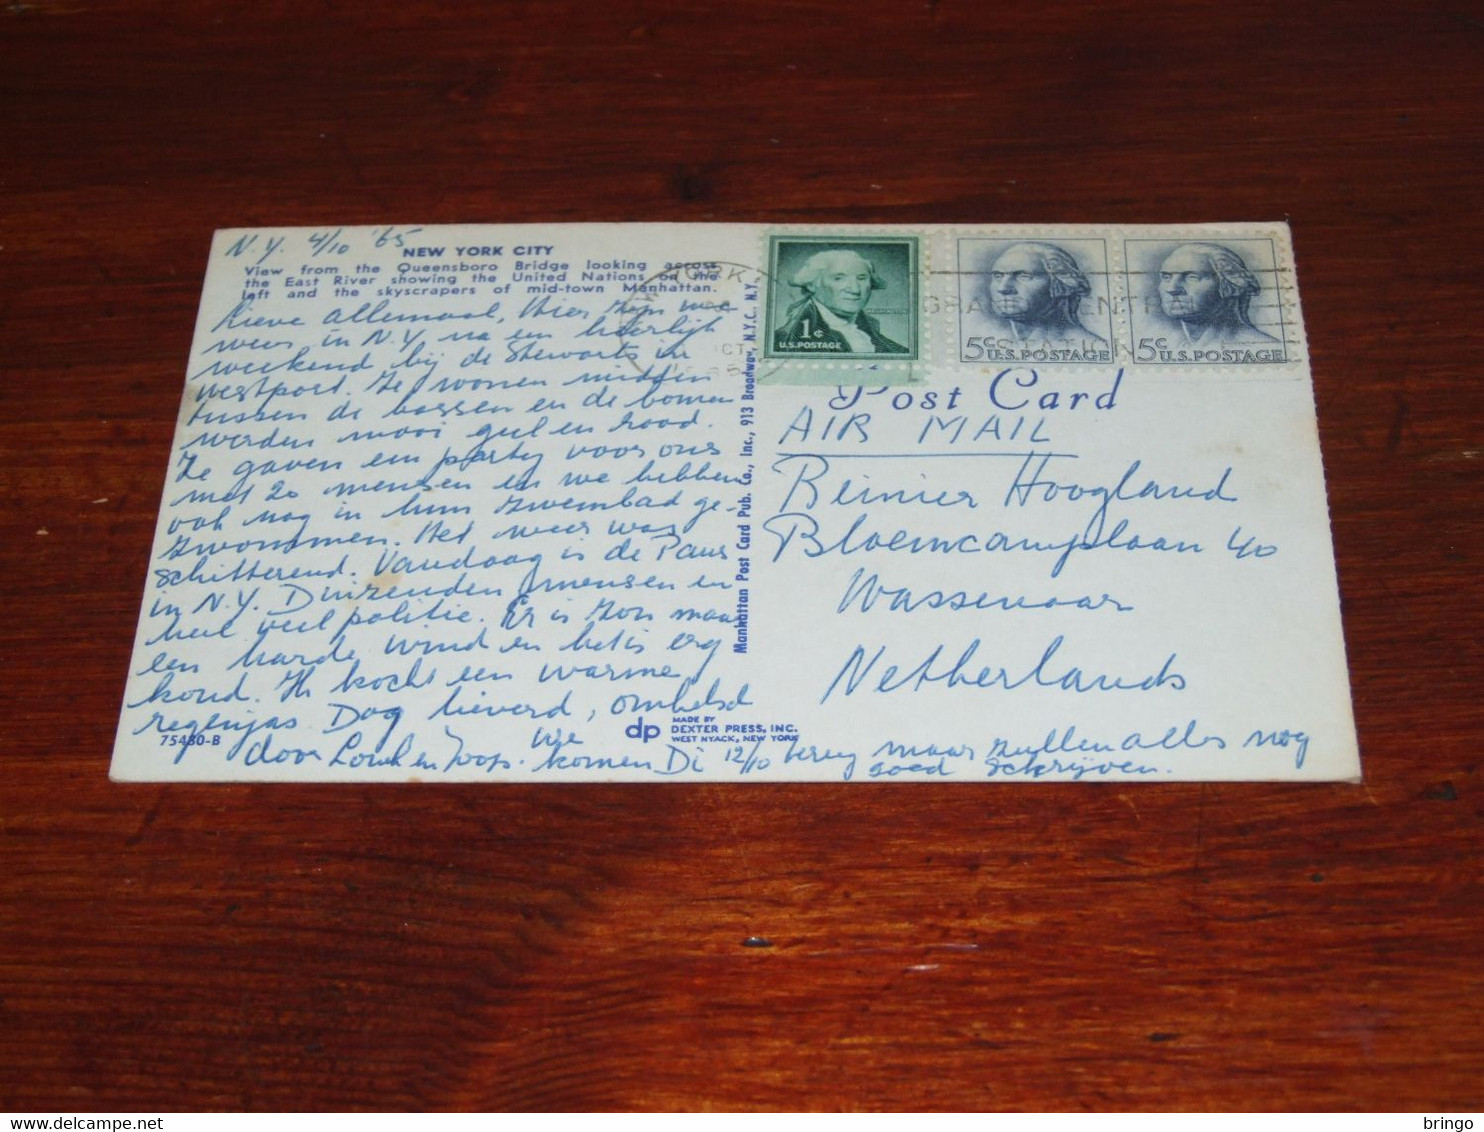 N.Y. 4/10 '65
NEW YORK CITY
View from the Queensboro Bridge looking across
the East River showing the United Nations on the
left and the skyscrapers of mid-town Manhattan.
Lieve allemaal, Hier zijn we
weer in N.Y. na een heerlijk
weekend bij de Stewarts in
Westport. Ze wonen midden
tussen de bossen en de bomen
werden mooi geel en rood.
Ze gaven een party voor ons
met 20 mensen en we hebben
ook nog in hun zwembad ge-
zwommen. Het weer was
schitterend. Vandaag is de Paus
in N.Y. Duizenden mensen en
heel veel politie. Er is zon maar
een harde wind en het is erg
koud. Ik kocht een warme
regenjas Dag lieverd, omhelsd
door en Joop. We komen Di 12/10 terug maar zullen alles nog
goed schrijven.
75480-B
dp
MADE BY
DEXTER PRESS, INC.
WEST NYACK, NEW YORK
Manhattan Post Card Pub. Co., Inc., 913 Broadway, N.Y.C., N.Y.
YORK
OCT
1965
GRAND CENTRAL
STATION
1¢
U.S. POSTAGE
5¢ U.S. POSTAGE
5¢ U.S. POSTAGE
Post Card
AIR MAIL
Reinier Hoogland
Bloemcamplaan 40
Wassenaar
Netherlands
delcampe.net
bringo